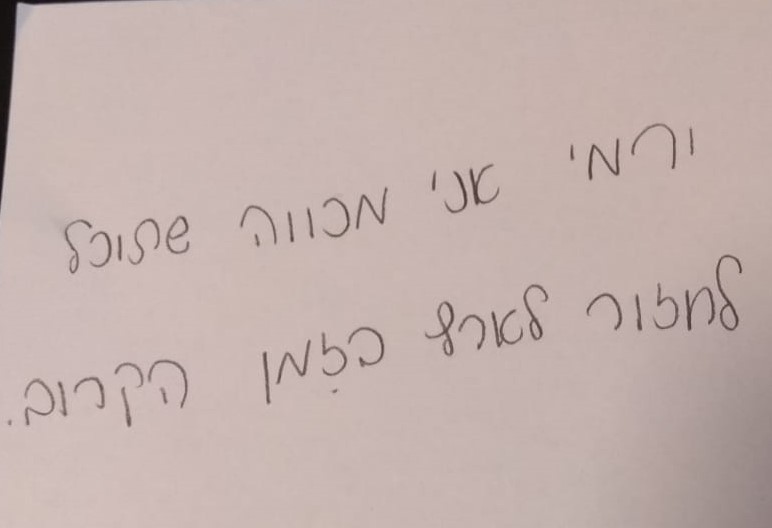 ורמי אני מכווה שתוכל
לחזור לארץ בזמן הקרוב.